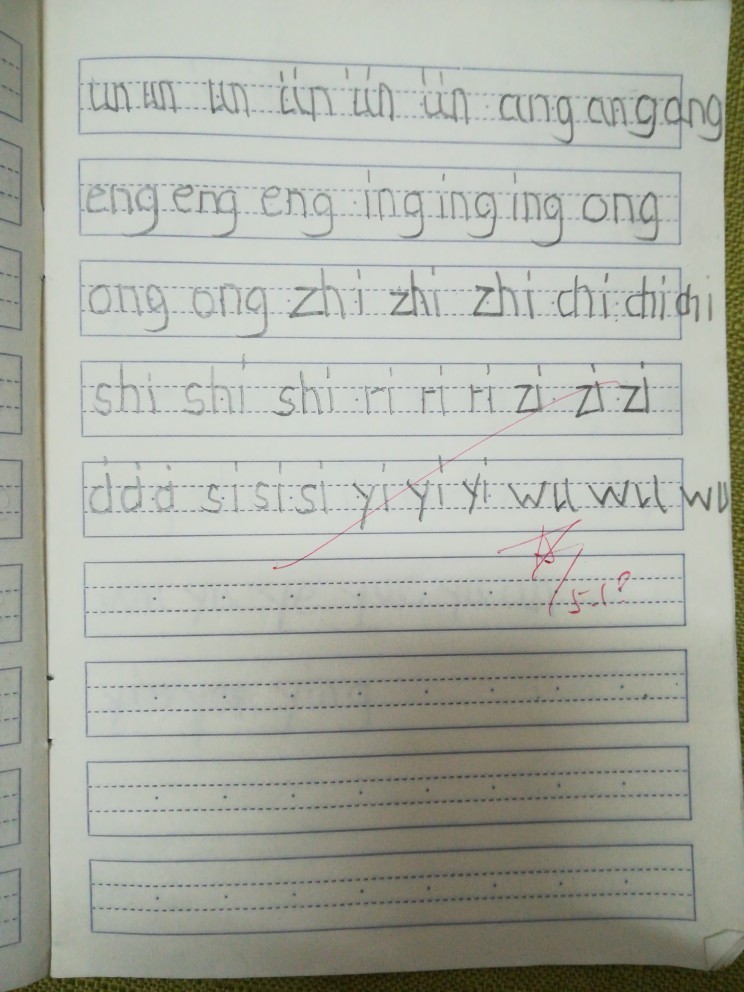 un un un ün ün ün ang ang ang
eng eng eng ing ing ing ong
ong ong zhi zhi zhi chi chi chi
shi shi shi ri ri ri zi zi zi
si si si yi yi yi wu wu wu